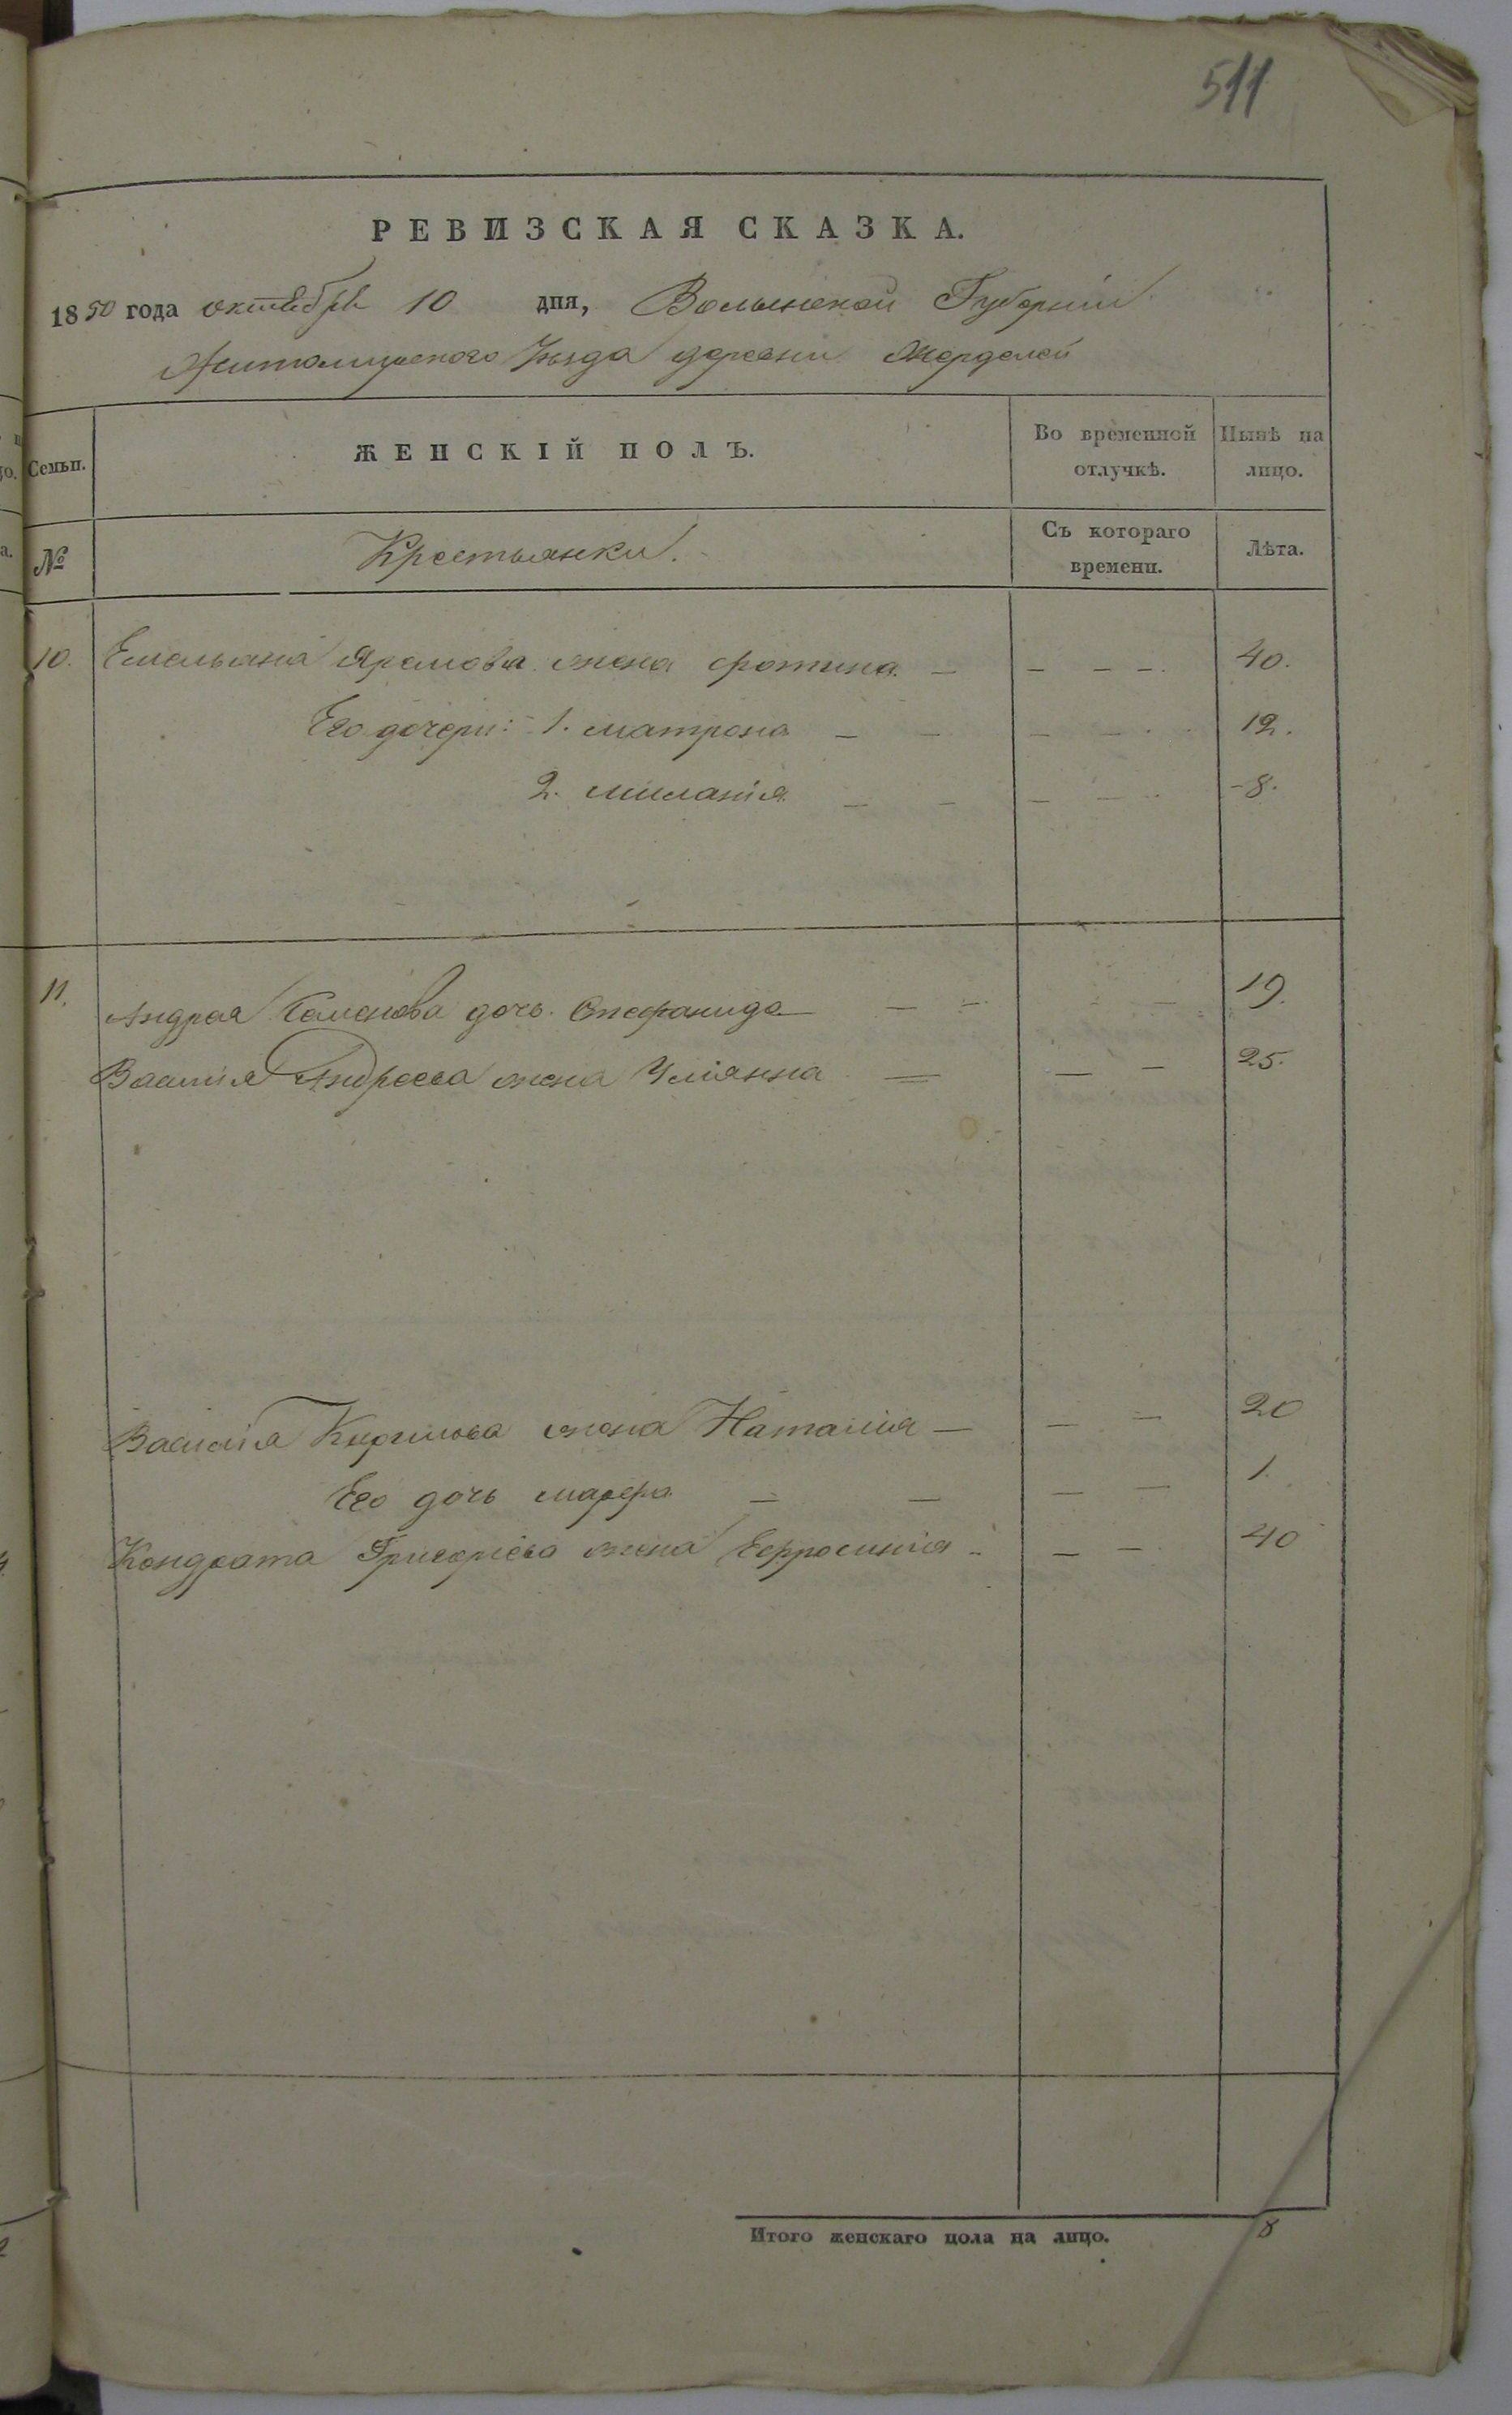 511
РЕВИЗСКАЯ СКАЗКА.
1850 года октября 10 дня, Волынской Губернии
Житомирского Уезда деревни Жерделей
Семьи.
ЖЕНСКІЙ ПОЛЪ.
Во временной отлучкѣ.
Нынѣ на лицо.
№
Крестьянки.
Съ котораго времени.
Лѣта.
10. Емельяна Яремова жена Фотина — — — — 40.
Его дочери: 1. Матрона — — — — 12.
2. Миланія — — — — 8.
11. Андрея Семенова дочь Стефанида — — — 19.
Василія Андреева жена Уліянна — — — 25.
Василія Кирилова жена Наталия — — — 20
Его дочь Марфа — — — — 1.
Кондрата Григоріева жена Ефросинія — — — 40
Итого женскаго пола на лицо. 8